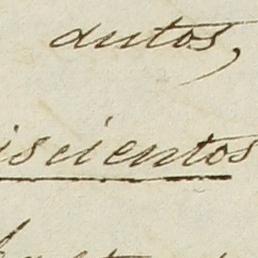 dutos,
iscientos